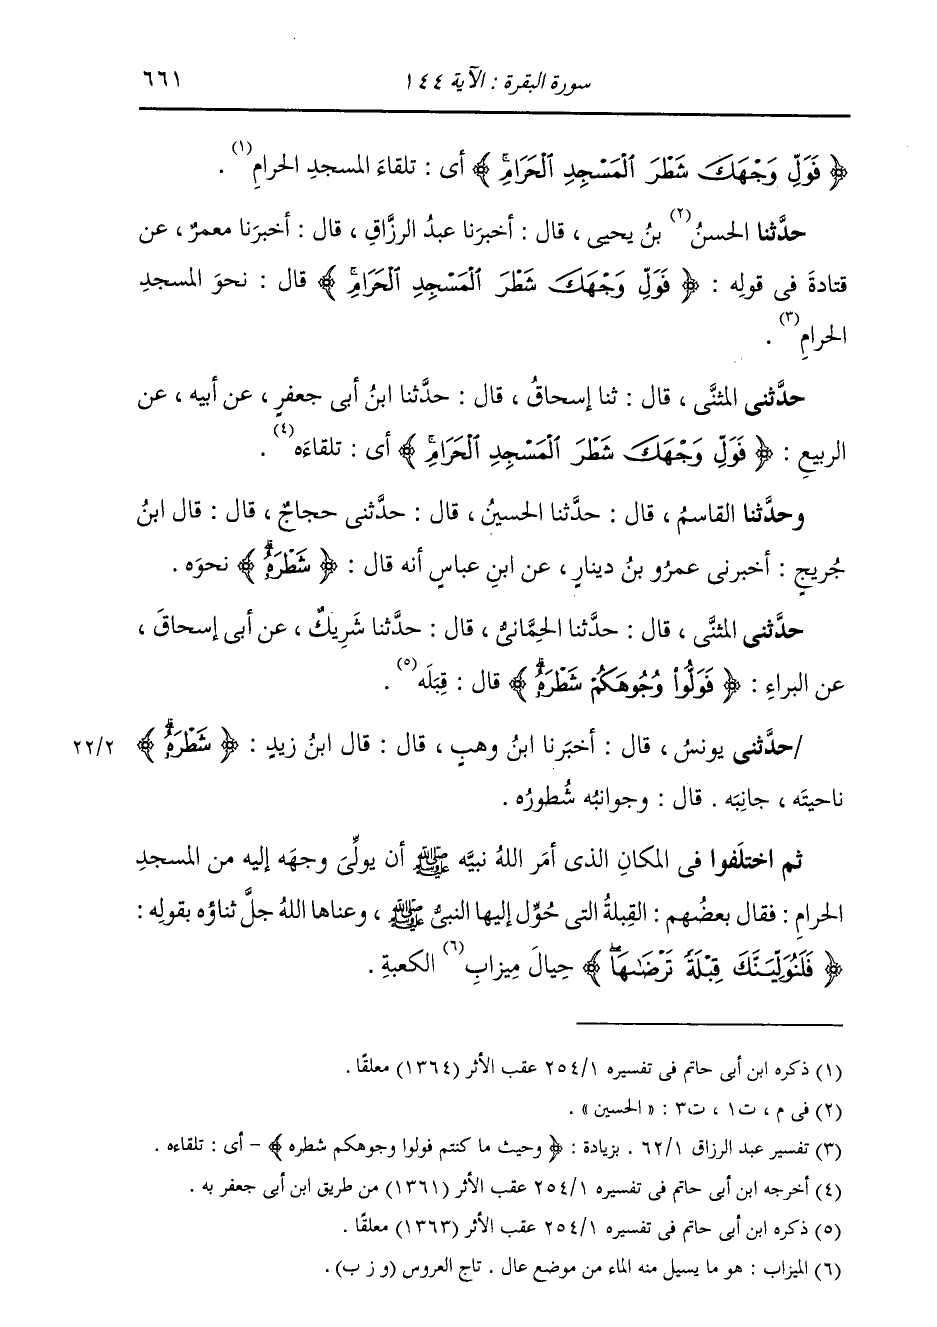 سورة البقرة : الآية ١٤٤ ٦٦١
﴿ فَوَلِّ وَجْهَكَ شَطْرَ الْمَسْجِدِ الْحَرَامِ ﴾ أى : تلقاءَ المسجدِ الحرامِ(١) .
حدَّثنا الحسنُ(٢) بنُ يحيى ، قال : أخبرَنا عبدُ الرزَّاقِ ، قال : أخبرَنا معمرٌ ، عن
قتادةَ فى قولِه : ﴿ فَوَلِّ وَجْهَكَ شَطْرَ الْمَسْجِدِ الْحَرَامِ ﴾ قال : نحوَ المسجدِ
الحرامِ(٣) .
حدَّثنى المثنَّى ، قال : ثنا إسحاقُ ، قال : حدَّثنا ابنُ أبى جعفرٍ ، عن أبيه ، عن
الربيعِ : ﴿ فَوَلِّ وَجْهَكَ شَطْرَ الْمَسْجِدِ الْحَرَامِ ﴾ أى : تلقاءَه(٤) .
وحدَّثنا القاسمُ ، قال : حدَّثنا الحسينُ ، قال : حدَّثنى حجاجٌ ، قال : قال ابنُ
جُريجٍ : أخبرنى عمرُو بنُ دينارٍ ، عن ابنِ عباسٍ أنه قال : ﴿ شَطْرَهُ ﴾ نحوَه .
حدَّثنى المثنَّى ، قال : حدَّثنا الحِمَّانىُّ ، قال : حدَّثنا شَرِيكٌ ، عن أبى إسحاقَ ،
عن البراءِ : ﴿ فَوَلُّوا وُجُوهَكُمْ شَطْرَهُ ﴾ قال : قِبَلَه(٥) .
/حدَّثنى يونسُ ، قال : أخبَرنا ابنُ وهبٍ ، قال : قال ابنُ زيدٍ : ﴿ شَطْرَهُ ﴾ ٢٢/٢
ناحيتَه ، جانِبَه . قال : وجوانبُه شُطورُه .
ثم اختلَفوا فى المكانِ الذى أمَر اللهُ نبيَّه ﷺ أن يولِّىَ وجهَه إليه من المسجدِ
الحرامِ : فقال بعضُهم : القِبلةُ التى حُوِّل إليها النبىُّ ﷺ ، وعناها اللهُ جلَّ ثناؤه بقولِه :
﴿ فَلَنُوَلِّيَنَّكَ قِبْلَةً تَرْضَاهَا ﴾ حِيالَ مِيزابِ(٦) الكعبةِ .
(١) ذكره ابن أبى حاتم فى تفسيره ٢٥٤/١ عقب الأثر (١٣٦٤) معلقًا .
(٢) فى م ، ت١ ، ت٣ : « الحسين » .
(٣) تفسير عبد الرزاق ٦٢/١ . بزيادة : ﴿ وحيث ما كنتم فولوا وجوهكم شطره ﴾ - أى : تلقاءه .
(٤) أخرجه ابن أبى حاتم فى تفسيره ٢٥٤/١ عقب الأثر (١٣٦١) من طريق ابن أبى جعفر به .
(٥) ذكره ابن أبى حاتم فى تفسيره ٢٥٤/١ عقب الأثر (١٣٦٣) معلقًا .
(٦) الميزاب : هو ما يسيل منه الماء من موضع عال . تاج العروس (و ز ب) .